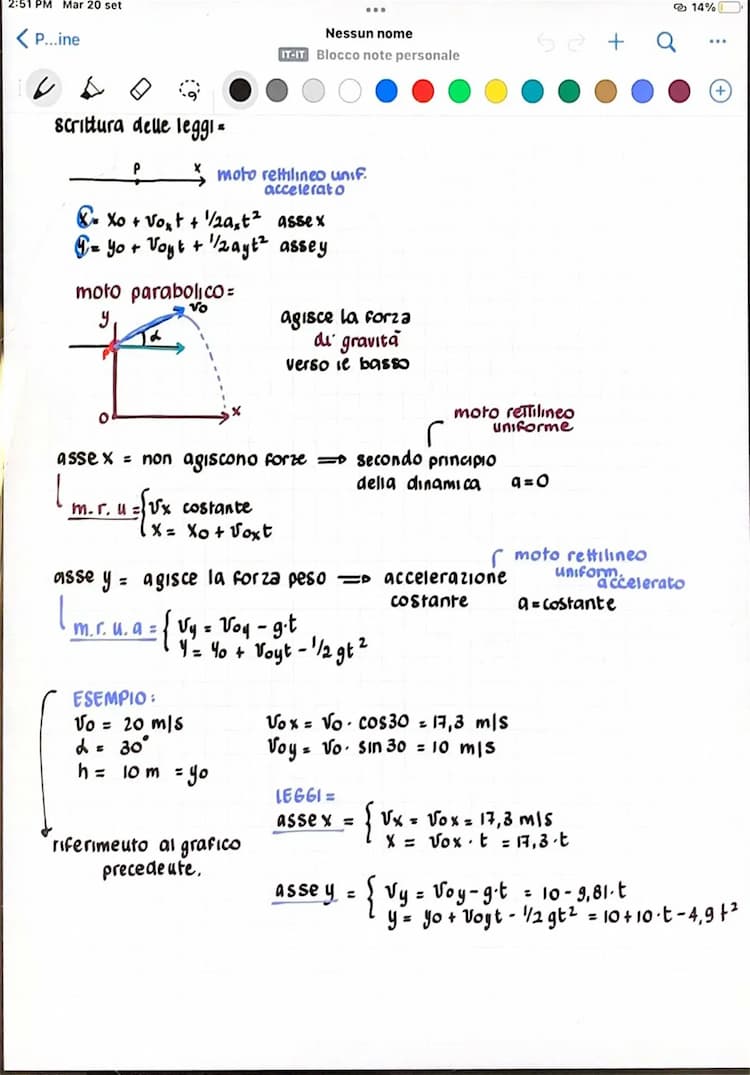 2:51 PM Mar 20 set
14%
P...ine
Nessun nome
IT-IT Blocco note personale
scrittura delle leggi =
P x
moto rettilineo unif.
accelerato
x = x0 + v0xt + 1/2axt² asse x
y = y0 + v0yt + 1/2ayt² asse y
moto parabolico =
y v0
α
P
O x
agisce la forza
di gravità
verso il basso
moto rettilineo
uniforme
asse x = non agiscono forze ⇒ secondo principio
della dinamica a=0
m.r.u = { vx costante
x = x0 + v0xt
moto rettilineo
uniform.
accelerato
asse y = agisce la forza peso ⇒ accelerazione
costante a=costante
m.r.u.a = { vy = v0y - g·t
y = y0 + v0yt - 1/2 gt²
ESEMPIO:
v0 = 20 m/s v0x = v0 · cos30 = 17,3 m/s
α = 30° v0y = v0 · sin 30 = 10 m/s
h = 10 m = y0
LEGGI =
asse x = { vx = v0x = 17,3 m/s
x = v0x · t = 17,3 · t
riferimento al grafico
precedente.
asse y = { vy = v0y - g·t = 10 - 9,81·t
y = y0 + v0yt - 1/2 gt² = 10+10·t-4,9t²